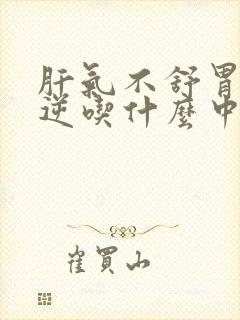 肝氣不舒胃
逆喫什麼中
崔買山